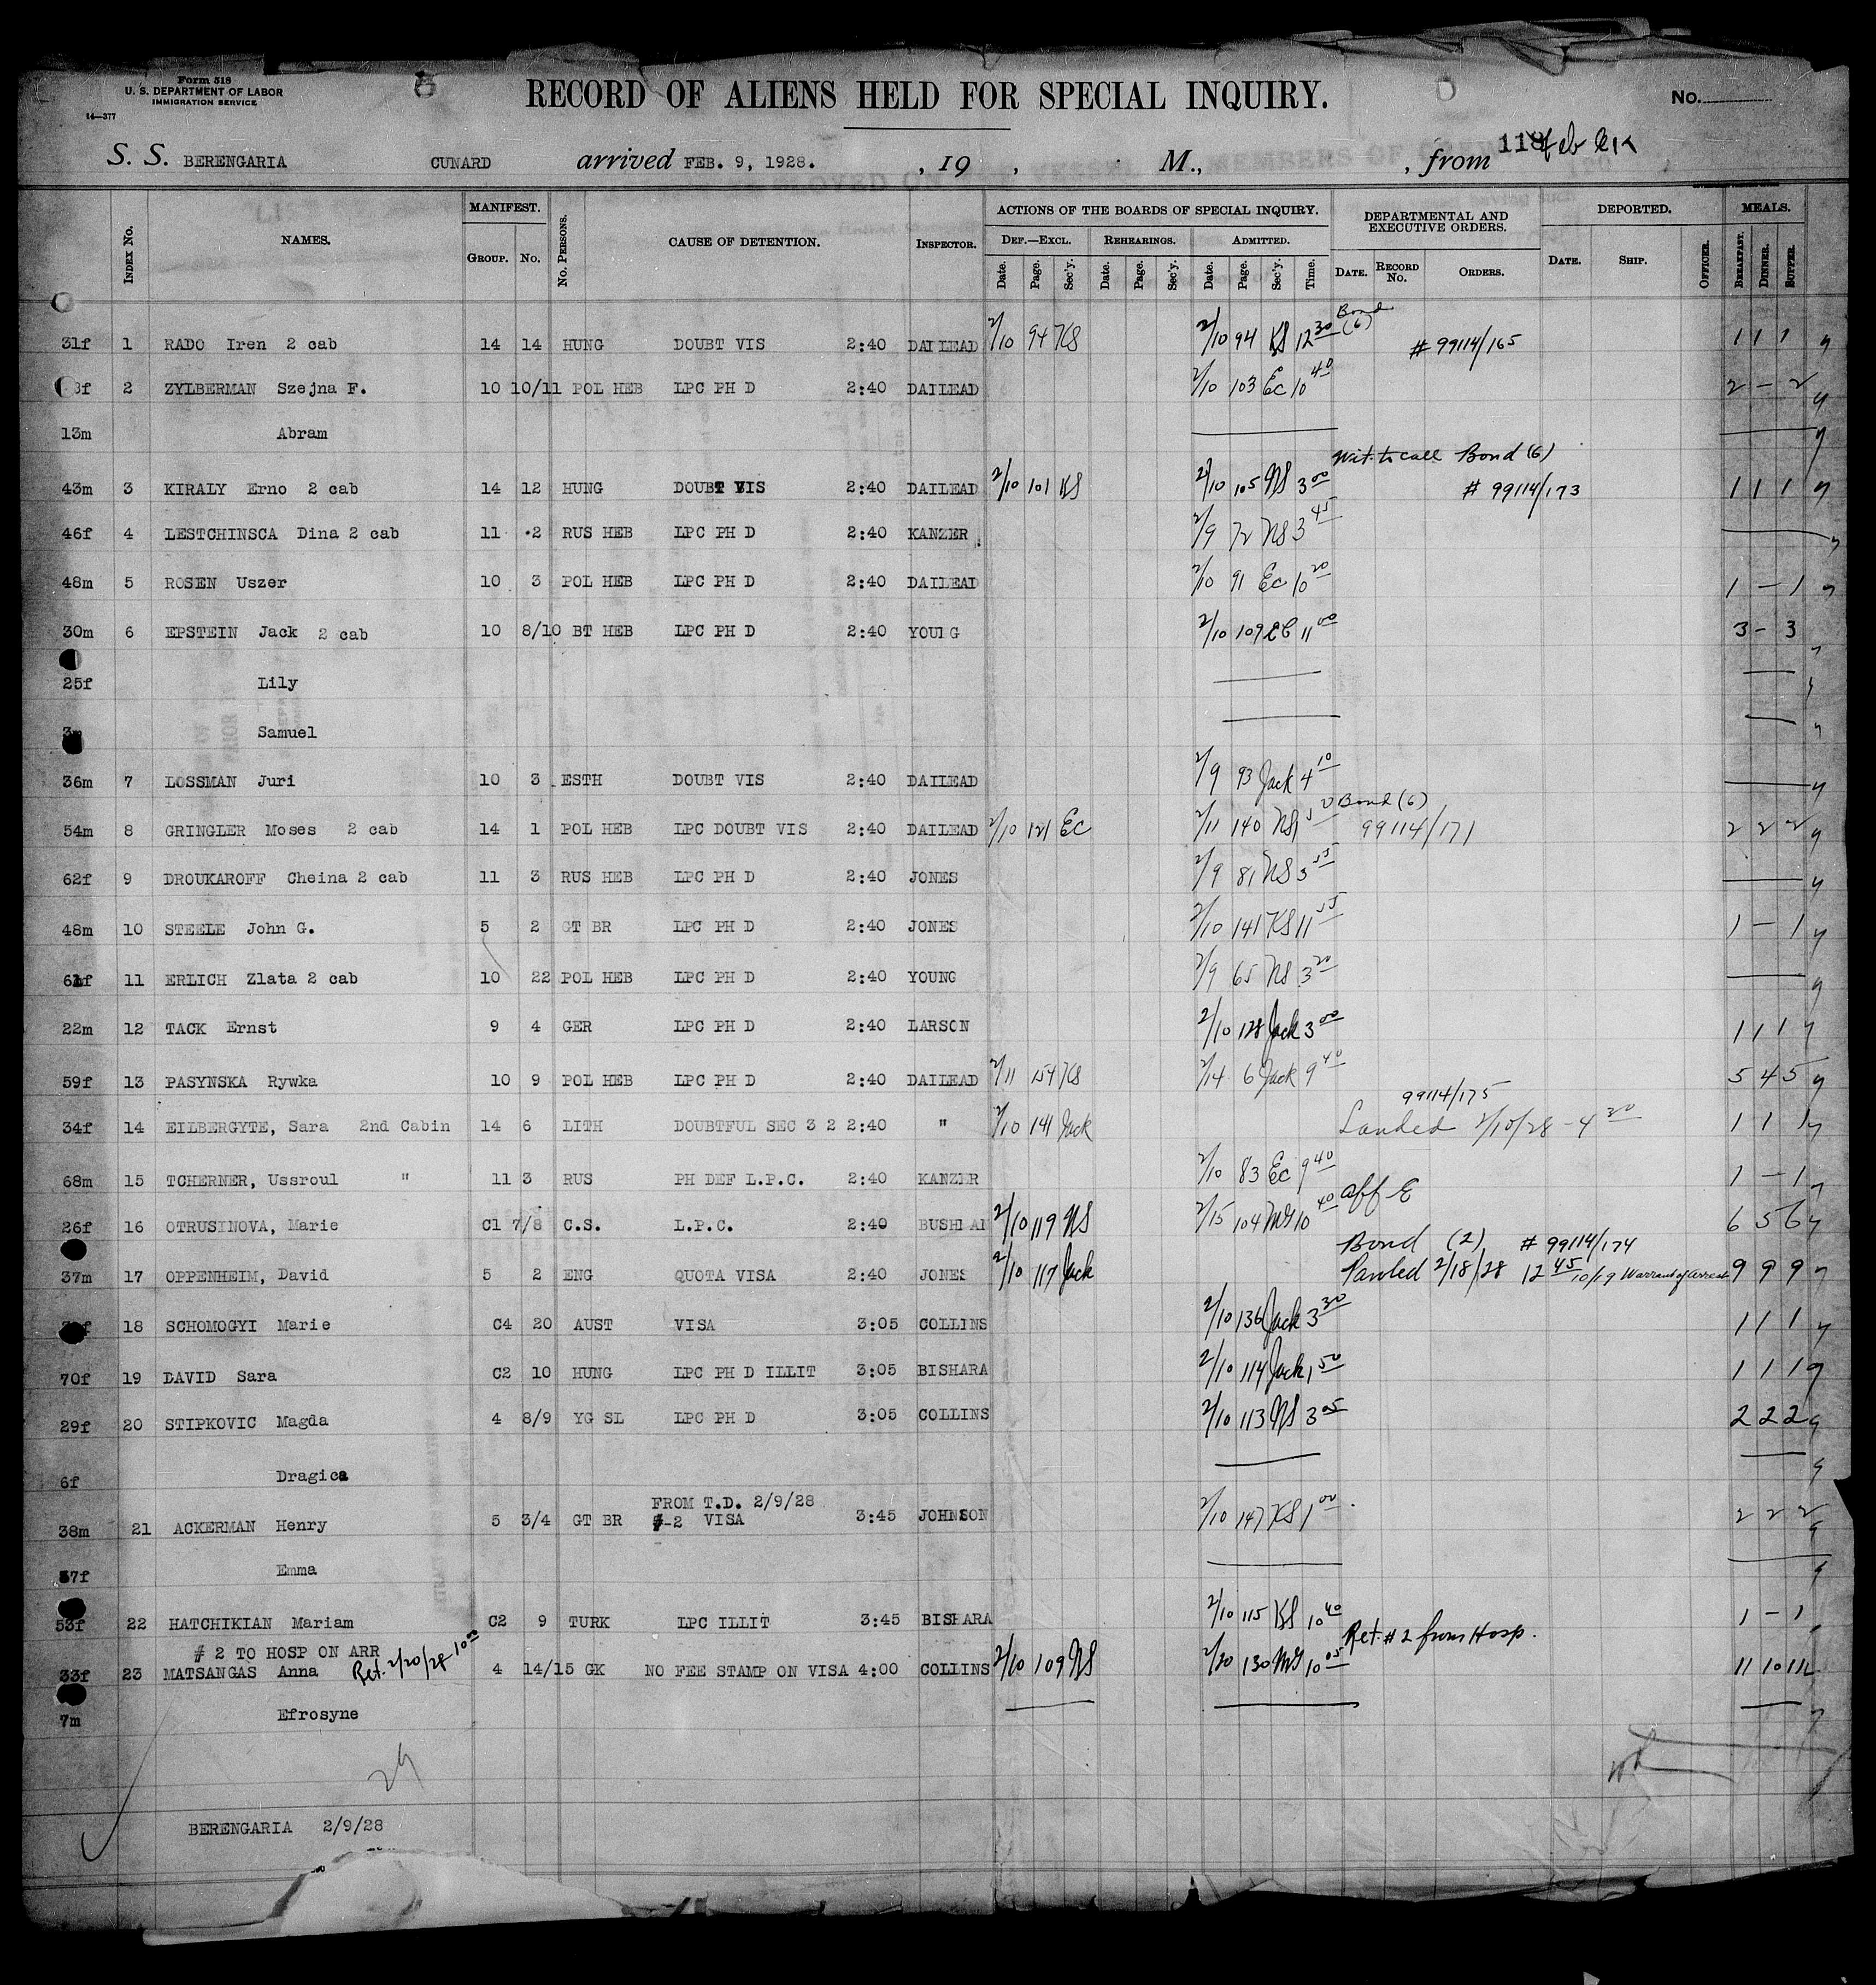 Form 518
U. S. DEPARTMENT OF LABOR
IMMIGRATION SERVICE
14—377
RECORD OF ALIENS HELD FOR SPECIAL INQUIRY.
No.
S. S. BERENGARIA CUNARD arrived FEB. 9, 1928. , 19 , M., , from 118
Index No. NAMES. MANIFEST. Group. No. No. Persons. CAUSE OF DETENTION. Inspector. ACTIONS OF THE BOARDS OF SPECIAL INQUIRY. Def.—Excl. Date. Page. Sec'y. Rehearings. Date. Page. Sec'y. Admitted. Date. Page. Sec'y. Time. DEPARTMENTAL AND EXECUTIVE ORDERS. Date. Record No. Orders. DEPORTED. Date. Ship. Officer. MEALS. Breakfast. Dinner. Supper.
31f 1 RADO Iren 2 cab 14 14 HUNG DOUBT VIS 2:40 DAILEAD 2/10 94 KS 2/10 94 KS 12 30 Bond (6) # 99114/165 1 1 1
3f 2 ZYLBERMAN Szejna F. 10 10/11 POL HEB LPC PH D 2:40 DAILEAD 2/10 103 Ec 10 40 2 - 2
13m Abram
43m 3 KIRALY Erno 2 cab 14 12 HUNG DOUBT VIS 2:40 DAILEAD 2/10 101 KS 2/10 105 NS 3 00 Wit. to call Bond (6) # 99114/173 1 1 1
46f 4 LESTCHINSCA Dina 2 cab 11 2 RUS HEB LPC PH D 2:40 KANZER 2/9 72 NS 3 45
48m 5 ROSEN Uszer 10 3 POL HEB LPC PH D 2:40 DAILEAD 2/10 91 Ec 10 20 1 - 1
30m 6 EPSTEIN Jack 2 cab 10 8/10 BT HEB LPC PH D 2:40 YOUNG 2/10 109 EC 11 00 3 - 3
25f Lily
3m Samuel
36m 7 LOSSMAN Juri 10 3 ESTH DOUBT VIS 2:40 DAILEAD 2/9 93 Jack 4 10
54m 8 GRINGLER Moses 2 cab 14 1 POL HEB LPC DOUBT VIS 2:40 DAILEAD 2/10 121 Ec 2/11 140 NS Bond (6) 99114/171 2 2 2
62f 9 DROUKAROFF Cheina 2 cab 11 3 RUS HEB LPC PH D 2:40 JONES 2/9 81 NS 3 55
48m 10 STEELE John G. 5 2 GT BR LPC PH D 2:40 JONES 2/10 141 KS 11 55 1 - 1
61f 11 ERLICH Zlata 2 cab 10 22 POL HEB LPC PH D 2:40 YOUNG 2/9 65 NS 3 20
22m 12 TACK Ernst 9 4 GER LPC PH D 2:40 LARSON 2/10 128 Jack 3 00 1 1 1
59f 13 PASYNSKA Rywka 10 9 POL HEB LPC PH D 2:40 DAILEAD 2/11 154 KS 2/14 6 Jack 9 40 5 4 5
34f 14 EILBERGYTE, Sara 2nd Cabin 14 6 LITH DOUBTFUL SEC 3 2 2:40 " 2/10 141 Jack 99114/175 Landed 2/10/28 - 4 20 1 1 1
68m 15 TCHERNER, Ussroul " 11 3 RUS PH DEF L.P.C. 2:40 KANZER 2/10 83 Ec 9 40 1 - 1
26f 16 OTRUSINOVA, Marie C1 7/8 C.S. L.P.C. 2:40 BUSHLAN 2/10 119 NS 2/15 104 MG 10 40 aff E 6 5 6
37m 17 OPPENHEIM, David 5 2 ENG QUOTA VISA 2:40 JONES 2/10 117 Jack Bond (2) # 99114/174 Landed 2/18/28 12 45 10/19 Warrant of arrest 9 9 9
18 SCHOMOGYI Marie C4 20 AUST VISA 3:05 COLLINS 2/10 136 Jack 3 30 1 1 1
70f 19 DAVID Sara C2 10 HUNG LPC PH D ILLIT 3:05 BISHARA 2/10 114 Jack 1 50 1 1 1
29f 20 STIPKOVIC Magda 4 8/9 YG SL LPC PH D 3:05 COLLINS 2/10 113 NS 3 05 2 2 2
6f Dragica
38m 21 ACKERMAN Henry 5 3/4 GT BR FROM T.D. 2/9/28 #-2 VISA 3:45 JOHNSON 2/10 147 KS 1 00 2 2 2
37f Emma
53f 22 HATCHIKIAN Mariam C2 9 TURK LPC ILLIT 3:45 BISHARA 2/10 115 KS 10 40 1 - 1
# 2 TO HOSP ON ARR Ret. 2/20/28 10 00 Ret. # 2 from Hosp.
33f 23 MATSANGAS Anna 4 14/15 GK NO FEE STAMP ON VISA 4:00 COLLINS 2/10 109 NS 2/20 130 MG 10 05 11 10 11
7m Efrosyne
29
BERENGARIA 2/9/28